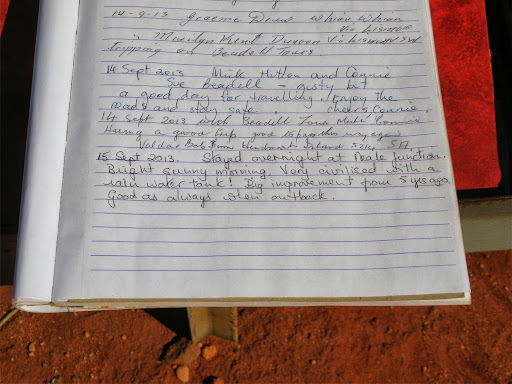 14-9-13 Graeme Drew Whian Whian
Via Lismore
" Marilyn Dunoon Via Lismore NSW
tripping on Beadell Tours
14 Sept 2013 Mick Hutton and Connie
Sue Beadell - gusty but
a good day for travelling, Enjoy the
roads and stay safe. cheers Connie.
14 Sept 2013 with Beadell Tours Mick Connie
Having a good trip good to
Valda Bob from Hindmarsh Island 5214 SA
15 Sept 2013. Stayed overnight at Neale Junction.
Bright sunny morning. Very civilised with a
rain water tank! Big improvement from 5 yrs ago.
Good as always when outback.